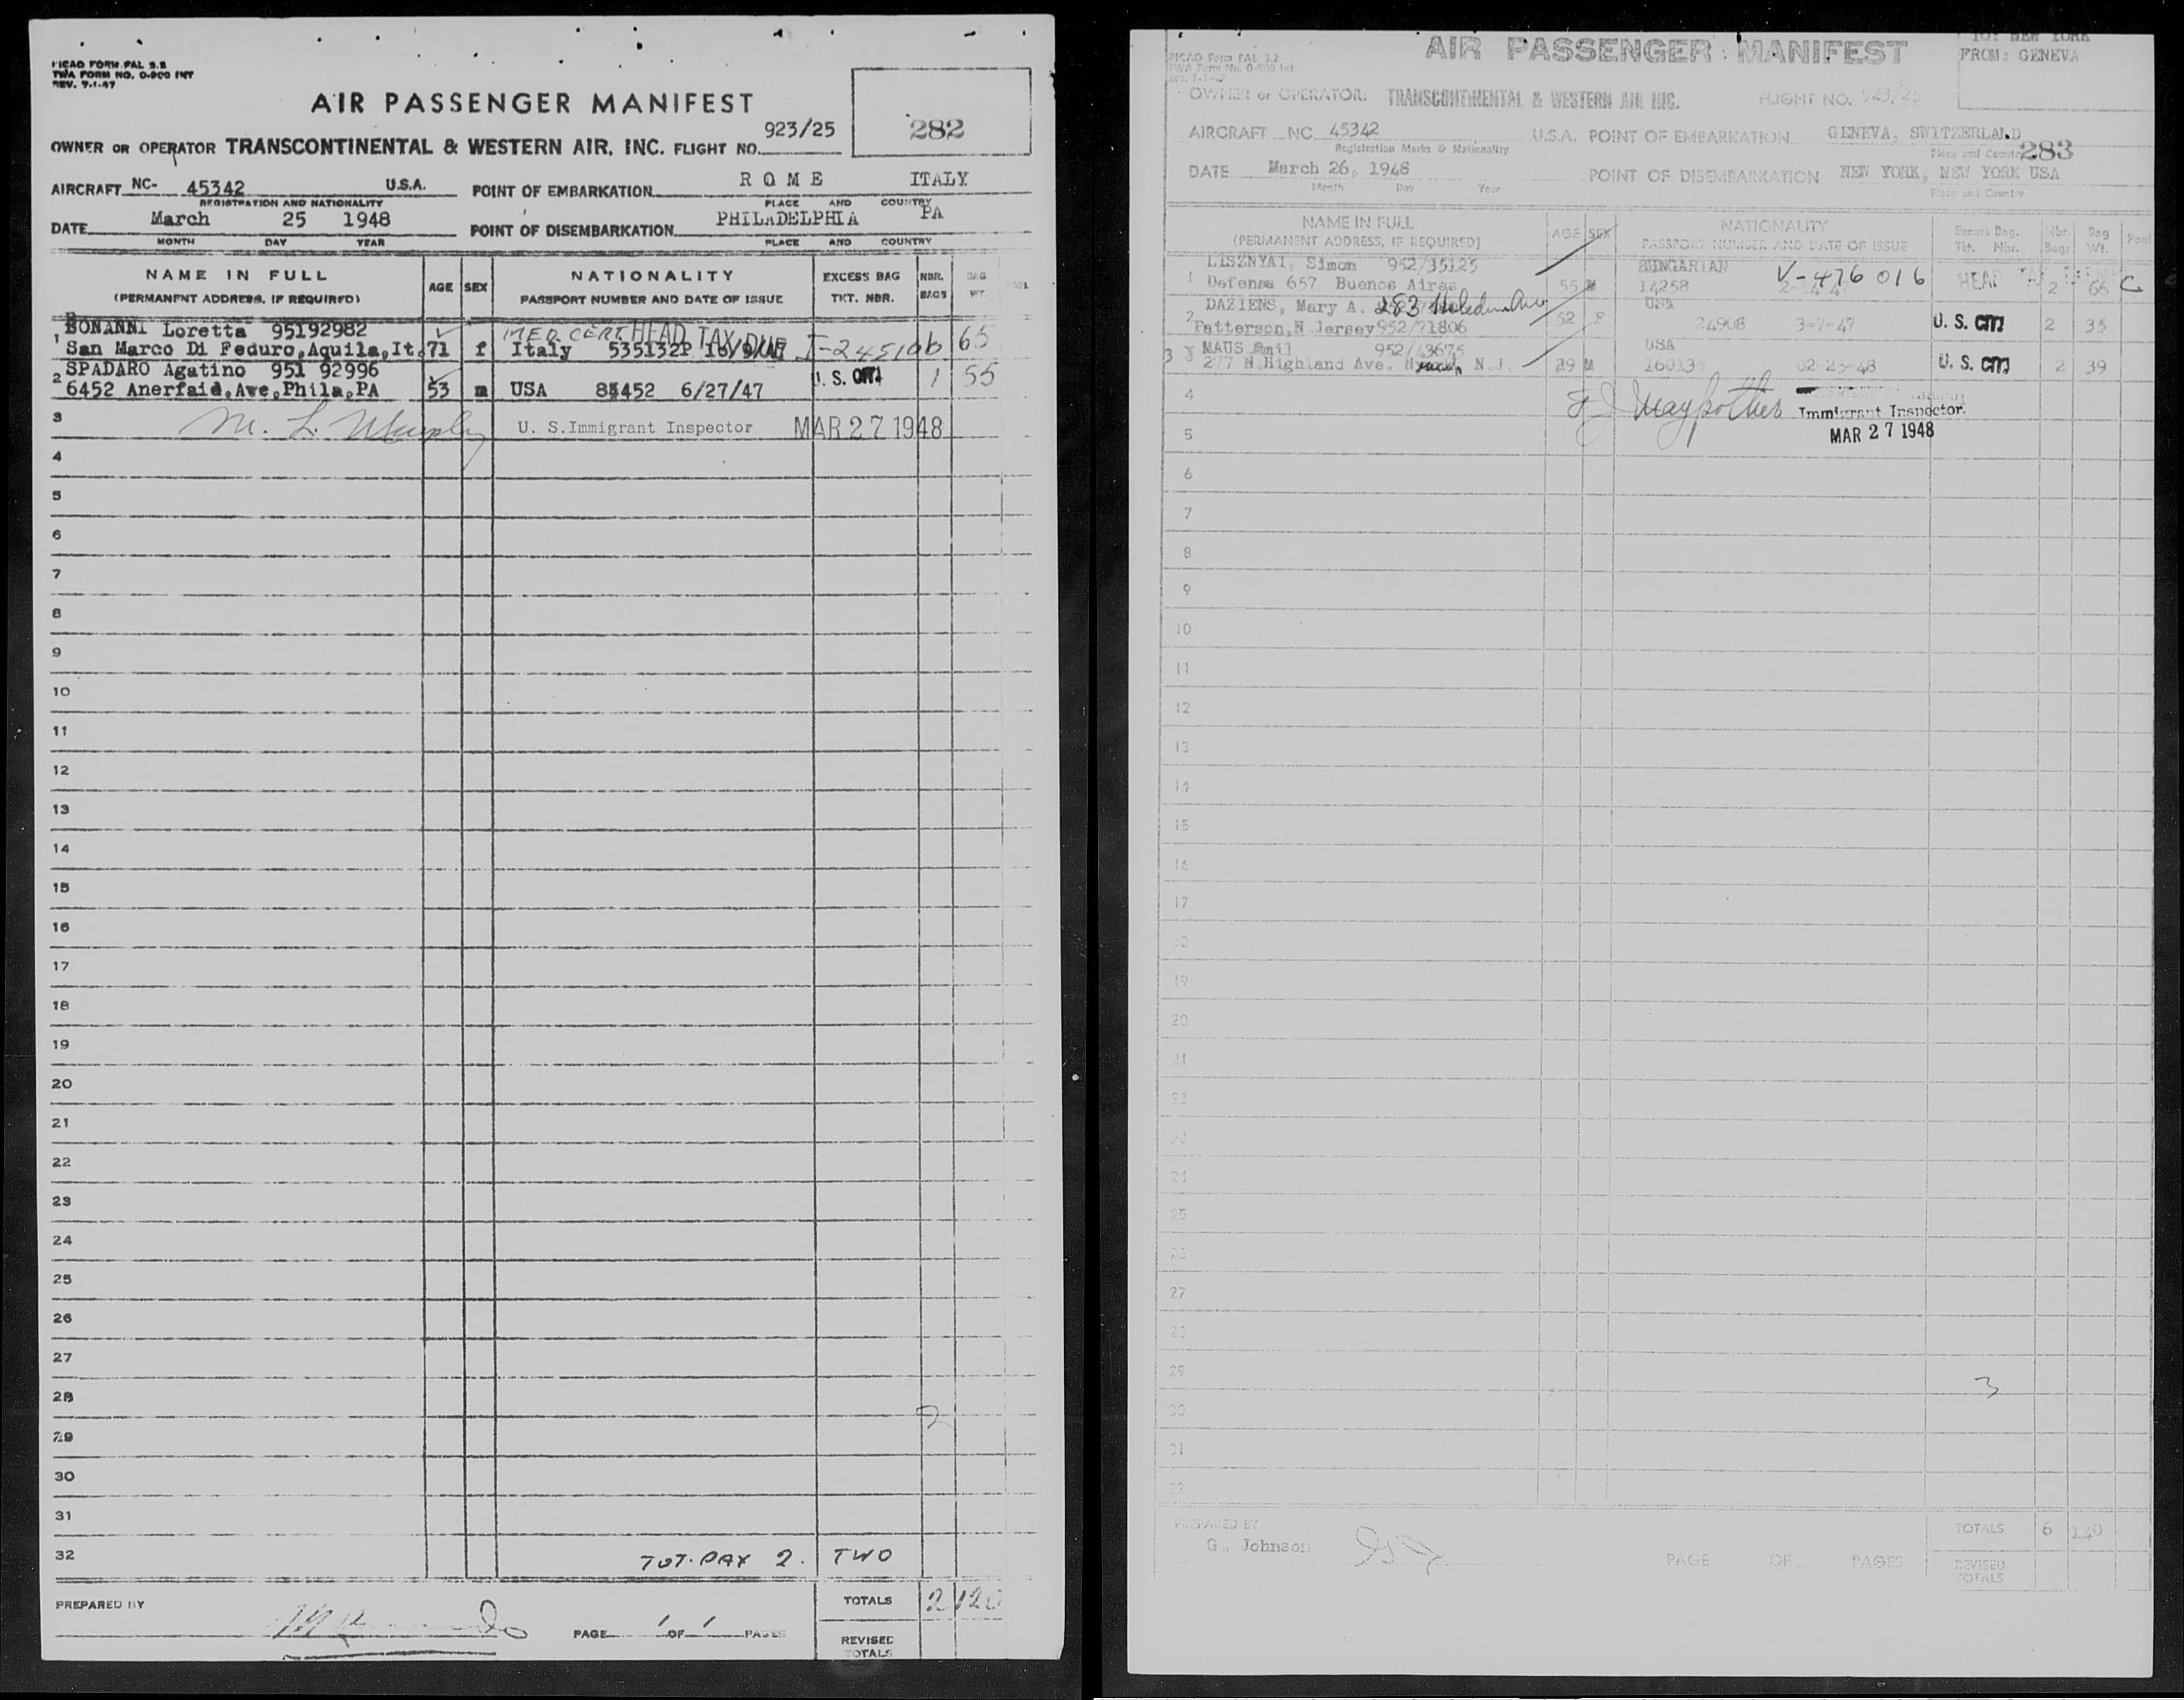 PICAO FORM FAL 3.2
TWA FORM NO. O-900 INT
REV. 7-1-47
AIR PASSENGER MANIFEST
282
OWNER OR OPERATOR TRANSCONTINENTAL & WESTERN AIR, INC. FLIGHT NO. 923/25
AIRCRAFT NC- 45342 U.S.A. POINT OF EMBARKATION ROME ITALY
REGISTRATION AND NATIONALITY PLACE AND COUNTRY
DATE March 25 1948 POINT OF DISEMBARKATION PHILADELPHIA PA
MONTH DAY YEAR PLACE AND COUNTRY
NAME IN FULL AGE SEX NATIONALITY EXCESS BAG NBR. BAG
(PERMANENT ADDRESS, IF REQUIRED) PASSPORT NUMBER AND DATE OF ISSUE TKT. NBR. BAGS WT.
1 BONANNI Loretta 95192982 MED CERT HEAD TAX DUE
San Marco Di Feduro,Aquila,It. 71 f Italy 535132P I-245106 65
2 SPADARO Agatino 951 92996
6452 Anerfaid,Ave,Phila,PA 53 m USA 84452 6/27/47 U. S. CITI 1 55
3 M. L. Murphy U. S.Immigrant Inspector MAR 27 1948
4
5
6
7
8
9
10
11
12
13
14
15
16
17
18
19
20
21
22
23
24
25
26
27
28
2
29
30
31
32 TOT. PAX 2. TWO
PREPARED BY PAGE 1 OF 1 PAGES TOTALS 2 120
REVISED TOTALS
TO: NEW YORK
FROM: GENEVA
PICAO Form FAL 3.2
TWA Form No. O-900 Int.
Rev. 7-1-47
AIR PASSENGER MANIFEST
OWNER or OPERATOR: TRANSCONTINENTAL & WESTERN AIR INC. FLIGHT NO. 923/25
AIRCRAFT NC 45342 U.S.A. POINT OF EMBARKATION GENEVA, SWITZERLAND
Registration Marks & Nationality Place and Country 283
DATE March 26, 1948 POINT OF DISEMBARKATION NEW YORK, NEW YORK USA
Month Day Year Place and Country
NAME IN FULL AGE SEX NATIONALITY Excess Bag. Nbr. Bag Pool
(PERMANENT ADDRESS, IF REQUIRED) PASSPORT NUMBER AND DATE OF ISSUE Tkt. Nbr. Bags Wt.
1 LISZNYAI, Simon 952/35125 HUNGARIAN V-476 016 HEAD TAX
Defensa 657 Buenos Aires 55 M 14258 2 66 C
2 DAZIENS, Mary A. 283 USA
Patterson,N Jersey 952/71806 52 F 24908 3-7-47 U. S. CITI 2 35
3 MAUS Emil 952/43675 USA
277 N.Highland Ave. N.J. 29 M 160135 02-25-48 U. S. CITI 2 39
4
Immigrant Inspector
5 MAR 27 1948
6
7
8
9
10
11
12
13
14
15
16
17
18
19
20
21
22
23
24
25
26
27
28
29
3
30
31
32
PREPARED BY TOTALS 6 140
G. Johnson PAGE OF PAGES REVISED TOTALS